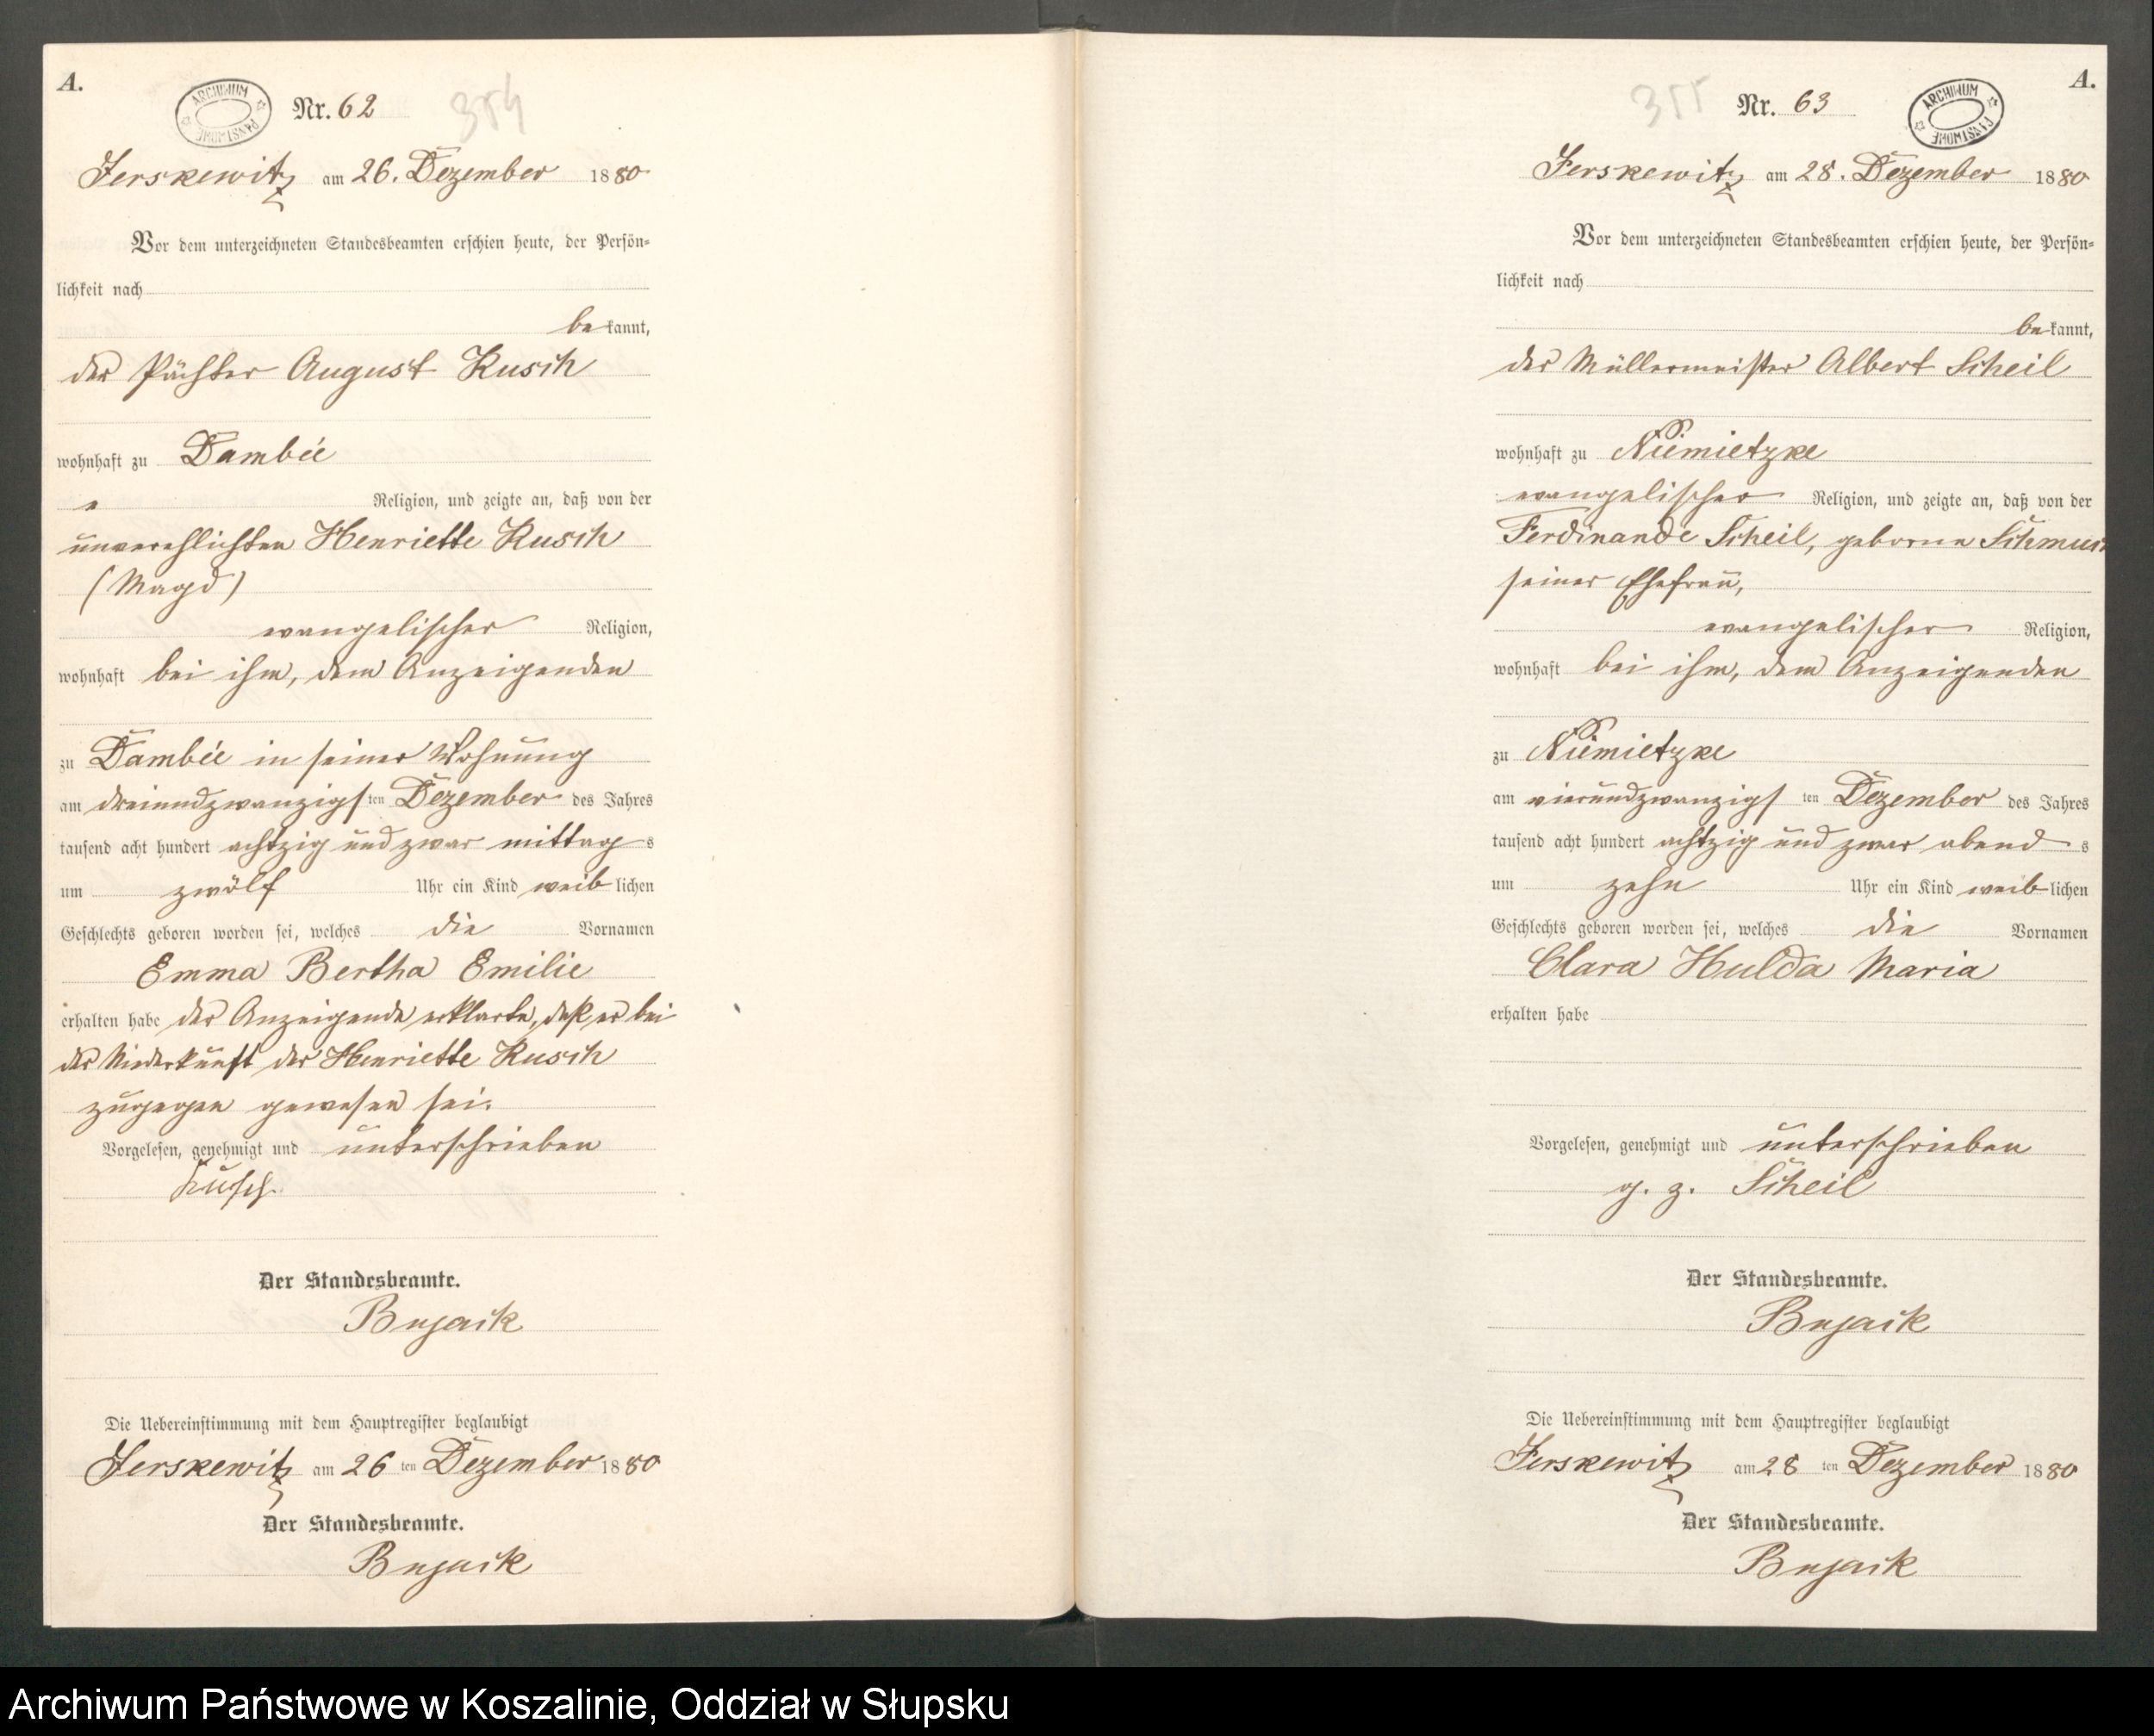 A.
ARCHIWUM PAŃSTWOWE
Nr. 62
354
Jerskewitz am 26. Dezember 1880
Vor dem unterzeichneten Standesbeamten erschien heute, der Persön-
lichkeit nach
be kannt,
der Pächter August Kusch
wohnhaft zu Dambée
e Religion, und zeigte an, daß von der
unverehlichten Henriette Kusch
(Magd)
evangelischer Religion,
wohnhaft bei ihm, dem Anzeigenden
zu Dambée in seiner Wohnung
am dreiundzwanzigs ten Dezember des Jahres
tausend acht hundert achtzig und zwar mittag s
um zwölf Uhr ein Kind weib lichen
Geschlechts geboren worden sei, welches die Vornamen
Emma Bertha Emilie
erhalten habe der Anzeigende erklarte, daß er bei
der Niederkunft der Henriette Kusch
zugegen gewesen sei.
Vorgelesen, genehmigt und unterschrieben
Kusch.
Der Standesbeamte.
Bujack
Die Uebereinstimmung mit dem Hauptregister beglaubigt
Jerskewitz am 26 ten Dezember 1880
Der Standesbeamte.
Bujack
A.
355
Nr. 63
ARCHIWUM PAŃSTWOWE
Jerskewitz am 28. Dezember 1880
Vor dem unterzeichneten Standesbeamten erschien heute, der Persön-
lichkeit nach
be kannt,
der Müllermeister Albert Scheil
wohnhaft zu Niemietzke
evangelischer Religion, und zeigte an, daß von der
Ferdinande Scheil, geborne
seiner Ehefrau,
evangelischer Religion,
wohnhaft bei ihm, dem Anzeigenden
zu Niemietzke
am vierundzwanzigs ten Dezember des Jahres
tausend acht hundert achtzig und zwar abend s
um zehn Uhr ein Kind weib lichen
Geschlechts geboren worden sei, welches die Vornamen
Clara Hulda Maria
erhalten habe
Vorgelesen, genehmigt und unterschrieben
g. z. Scheil
Der Standesbeamte.
Bujack
Die Uebereinstimmung mit dem Hauptregister beglaubigt
Jerskewitz am 28 ten Dezember 1880
Der Standesbeamte.
Bujack
Archiwum Państwowe w Koszalinie, Oddział w Słupsku